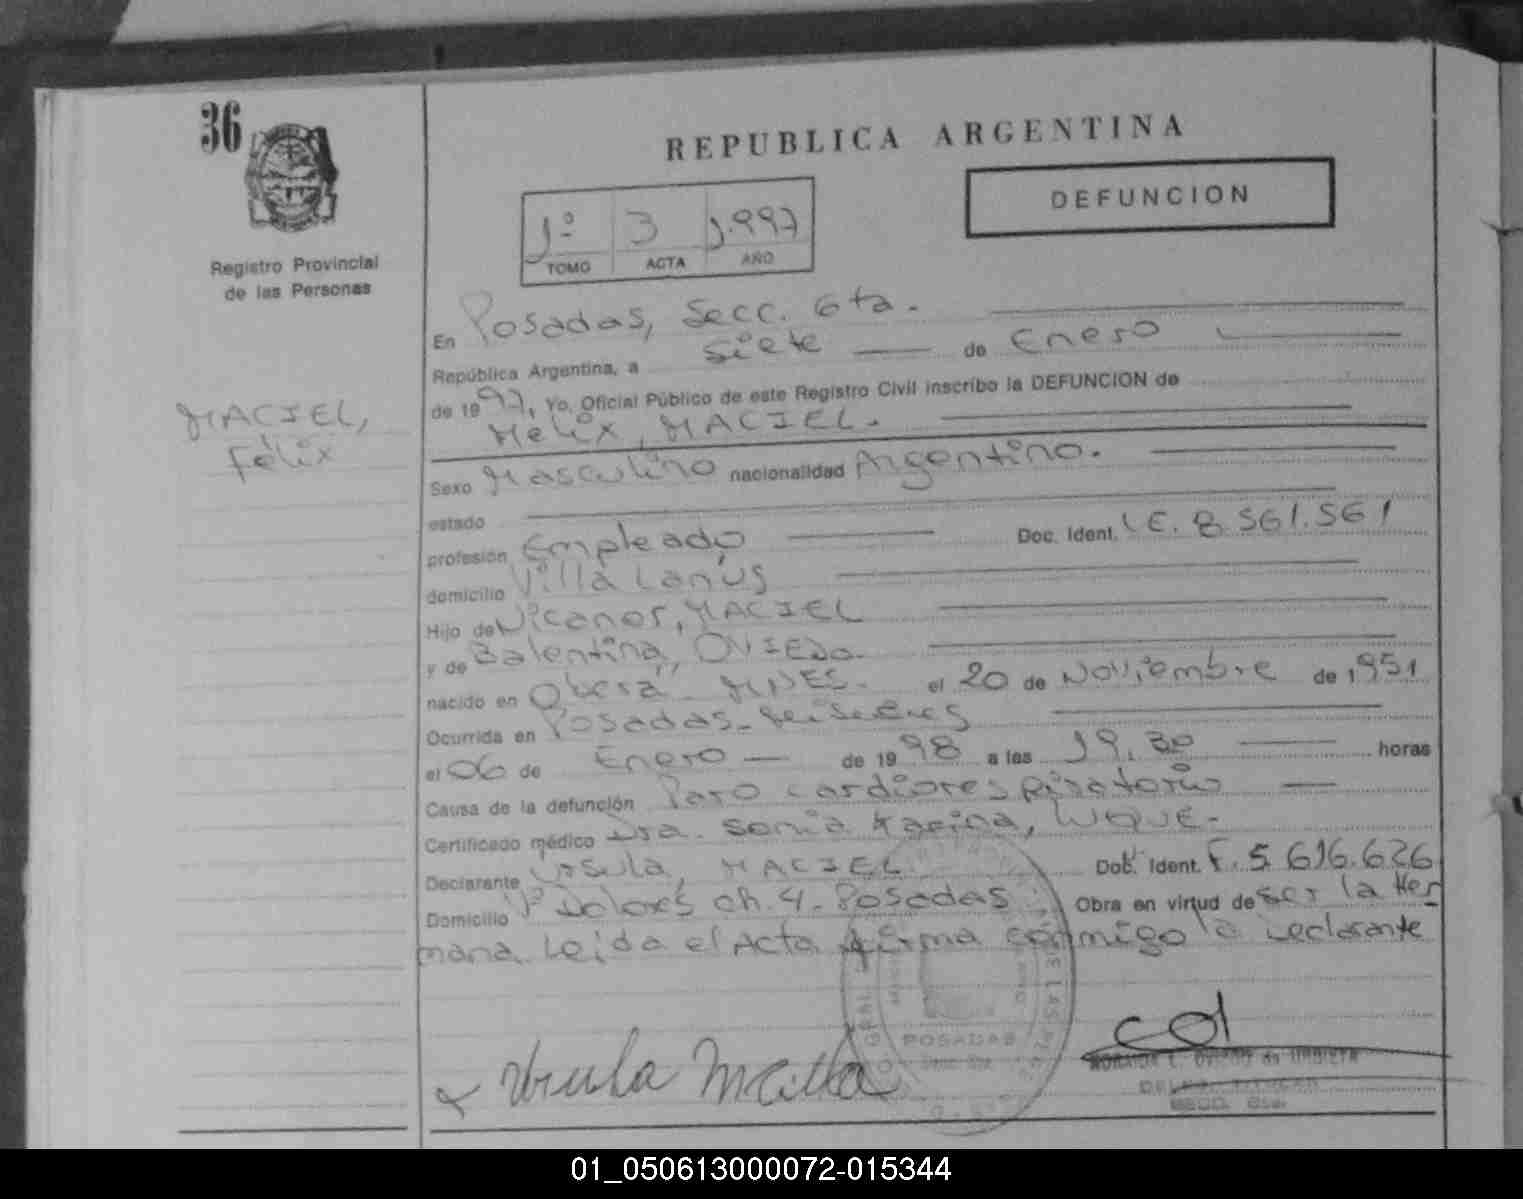 36
REPUBLICA ARGENTINA
DEFUNCION
1º 3 1.997
TOMO ACTA AÑO
Registro Provincial
de las Personas
MACIEL,
Félix
En Posadas, Secc. 6ta.
República Argentina, a siete de Enero
de 1997, Yo, Oficial Público de este Registro Civil inscribo la DEFUNCION de
Melix, MACIEL.
Sexo Masculino nacionalidad Argentino.
estado
profesión Empleado Doc. Ident. L.E. 8.561.561
domicilio Villa Lanús
Hijo de Nicanor, MACIEL
y de Balentina, OVIEDO.
nacido en Oberá - MNES. el 20 de Noviembre de 1951
Ocurrida en Posadas - Misiones
el 06 de Enero de 1998 a las 19,30 horas
Causa de la defunción Paro cardiorespiratorio
Certificado médico Dra. Sonia Karina, LUQUE.
Declarante Ursula, MACIEL Doc. Ident. F. 5.616.626
Domicilio Vª Dolores ch. 4 - Posadas Obra en virtud de ser la Her
mana. Leida el Acta firma conmigo la declarante
POSADAS
Ursula
OVIEDO de URBIETA
SECC. 6ta.
01_050613000072-015344